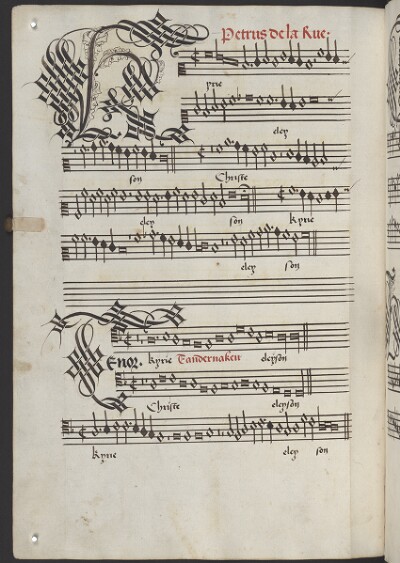 Petrus de la Rue:
K yrie
eley
son Christe
eley son Kyrie
eley son
Tenor. Kyrie Tandernaken eleyson
Christe eleyson
Kyrie eley son